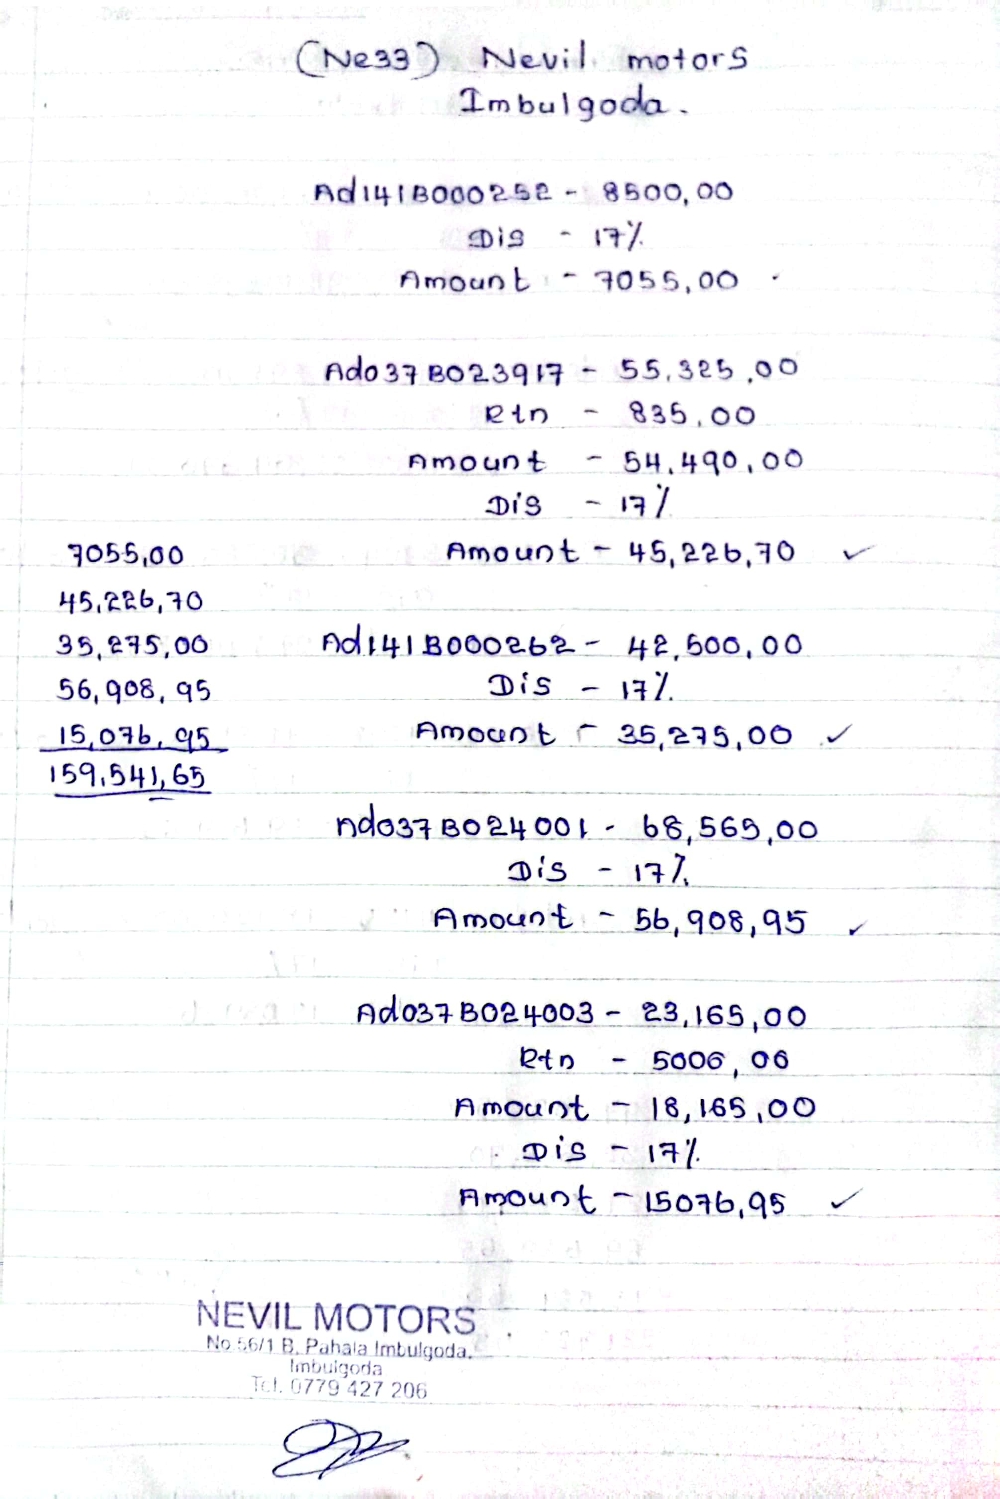 (Ne33) Nevil motors
Imbulgoda.
Ad141B000252 - 8500,00
Dis - 17%
Amount - 7055,00
Ado37B023917 - 55,325,00
Rtn - 835,00
Amount - 54,490,00
Dis - 17%
Amount - 45,226,70 ✓
Ad141B000262 - 42,500,00
Dis - 17%
Amount - 35,275,00 ✓
Ado37B024001 - 68,565,00
Dis - 17%
Amount - 56,908,95 ✓
Ado37B024003 - 23,165,00
Rtn - 5000,00
Amount - 18,165,00
Dis - 17%
Amount - 15076,95 ✓
7055,00
45,226,70
35,275,00
56,908,95
15,076,95
159,541,65
NEVIL MOTORS
No 56/1 B, Pahala Imbulgoda,
Imbulgoda
Tel. 0779 427 206